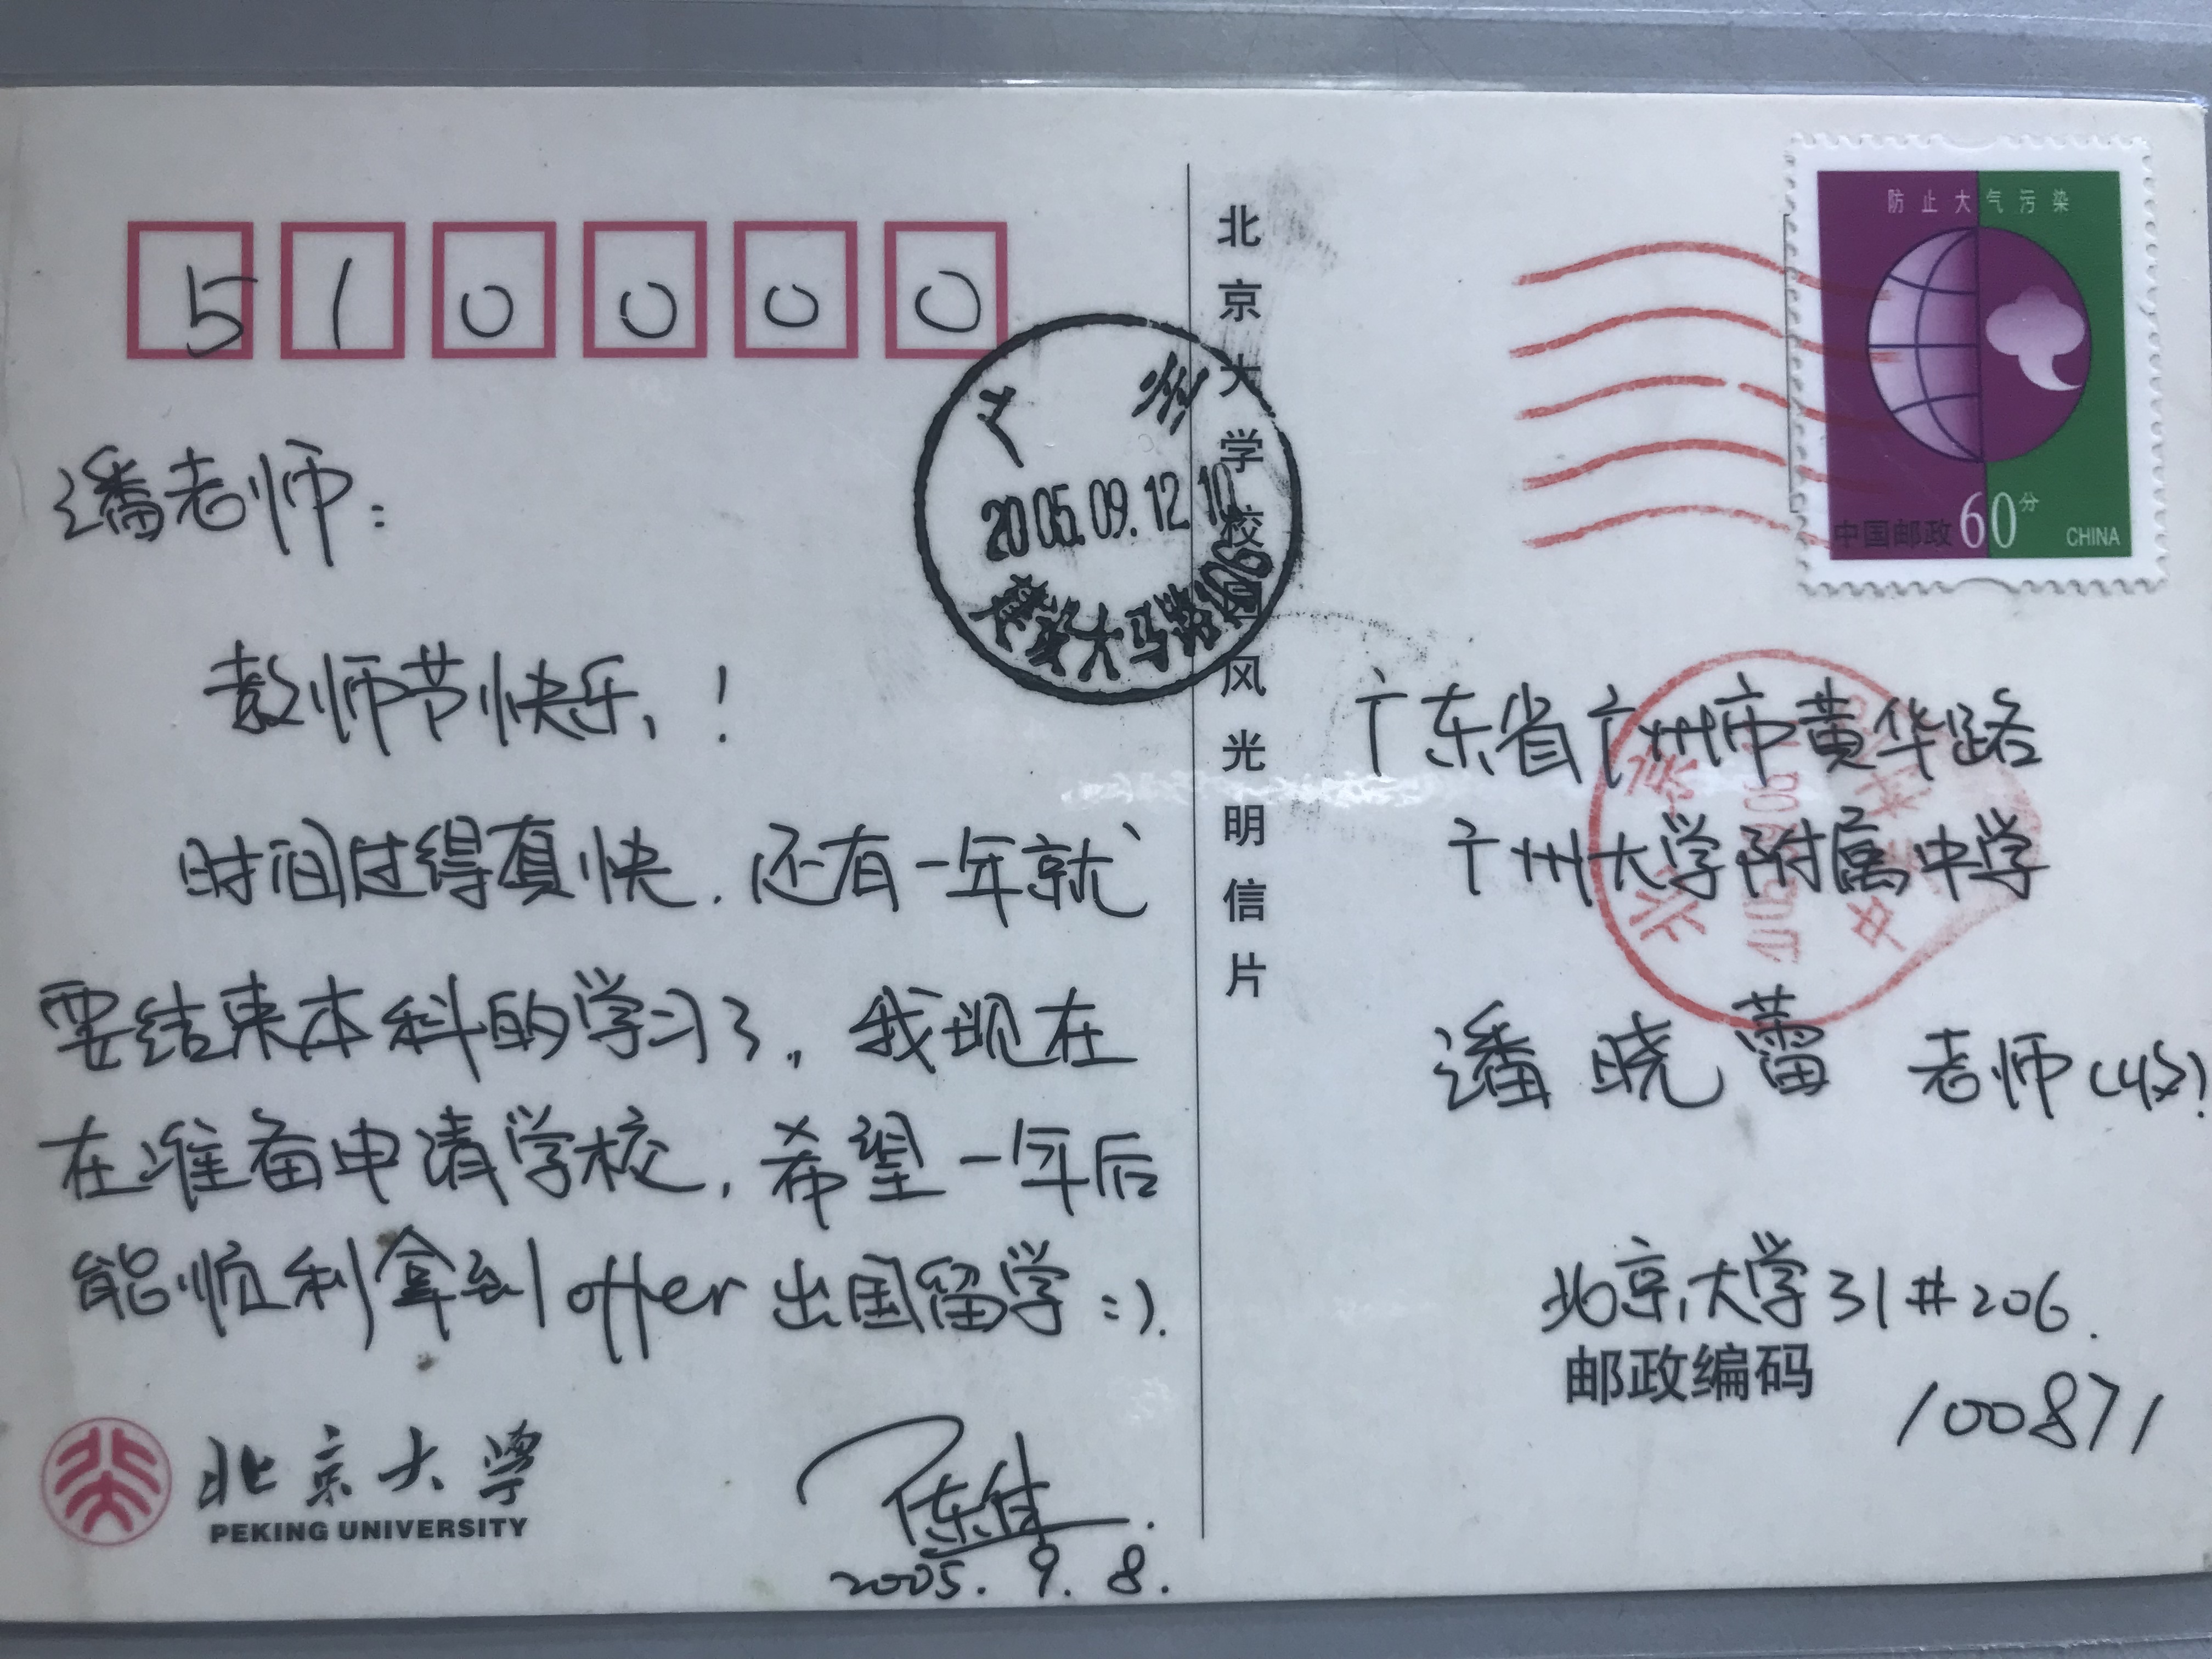 510000
潘老师：
教师节快乐！
时间过得真快，还有一年就
要结束本科的学习了，我现在
在准备申请学校，希望一年后
能顺利拿到offer出国留学 :).
2005. 9. 8.
北京大学
PEKING UNIVERSITY
广州
2005.09.12.10
建设大马路106
北京大学校园风光明信片
防止大气污染
中国邮政 60分 CHINA
广东省广州市黄华路
广州大学附属中学
潘晓蕾 老师(收)
北京大学31#206.
邮政编码
100871
北京